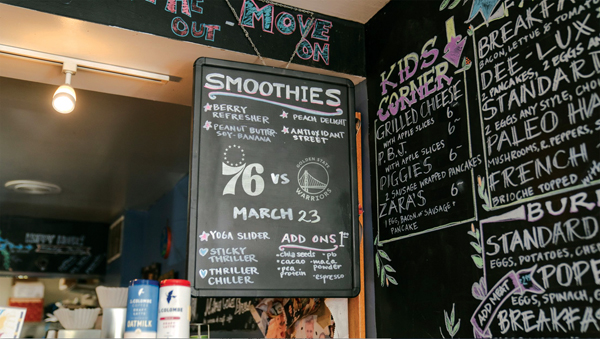 THE MOVE
OUT - ON
SMOOTHIES
BERRY
REFRESHER
PEACH DELIGHT
PEANUT BUTTR
SOY-BANANA
ANTIOXIDANT
STREET
76 VS
GOLDEN STATE
WARRIORS
MARCH 23
YOGA SLIDER
STICKY
THRILLER
THRILLER
CHILLER
ADD ONS 1
•chia seeds •pb
•cacao •maca
•pea powder
protein •espresso
KIDS
CORNER
GRILLED CHEESE 6-
WITH APPLE SLICES
P.B.J. 6-
WITH APPLE SLICES
PIGGIES 6-
2 SAUSAGE WRAPPED PANCAKES
ZARA'S 6-
1 EGG, BACON OR SAUSAGE
PANCAKE
BREAKFA
BACON, LETTUCE & TOMATO
DEE-LUX
2 PANCAKES, 2 EGGS AN
STANDARD
2 EGGS ANY STYLE, CHO
PALEO HA
MUSHROOMS, R. PEPPERS,
FRENCH
BRIOCHE TOPPED WITH
BURR
STANDARD
EGGS, POTATOES, CHEES
ADD MEAT
POPE
EGGS, SPINACH, G
BREAKFAS
LA COLOMBE
OATMILK
LA COLOMBE